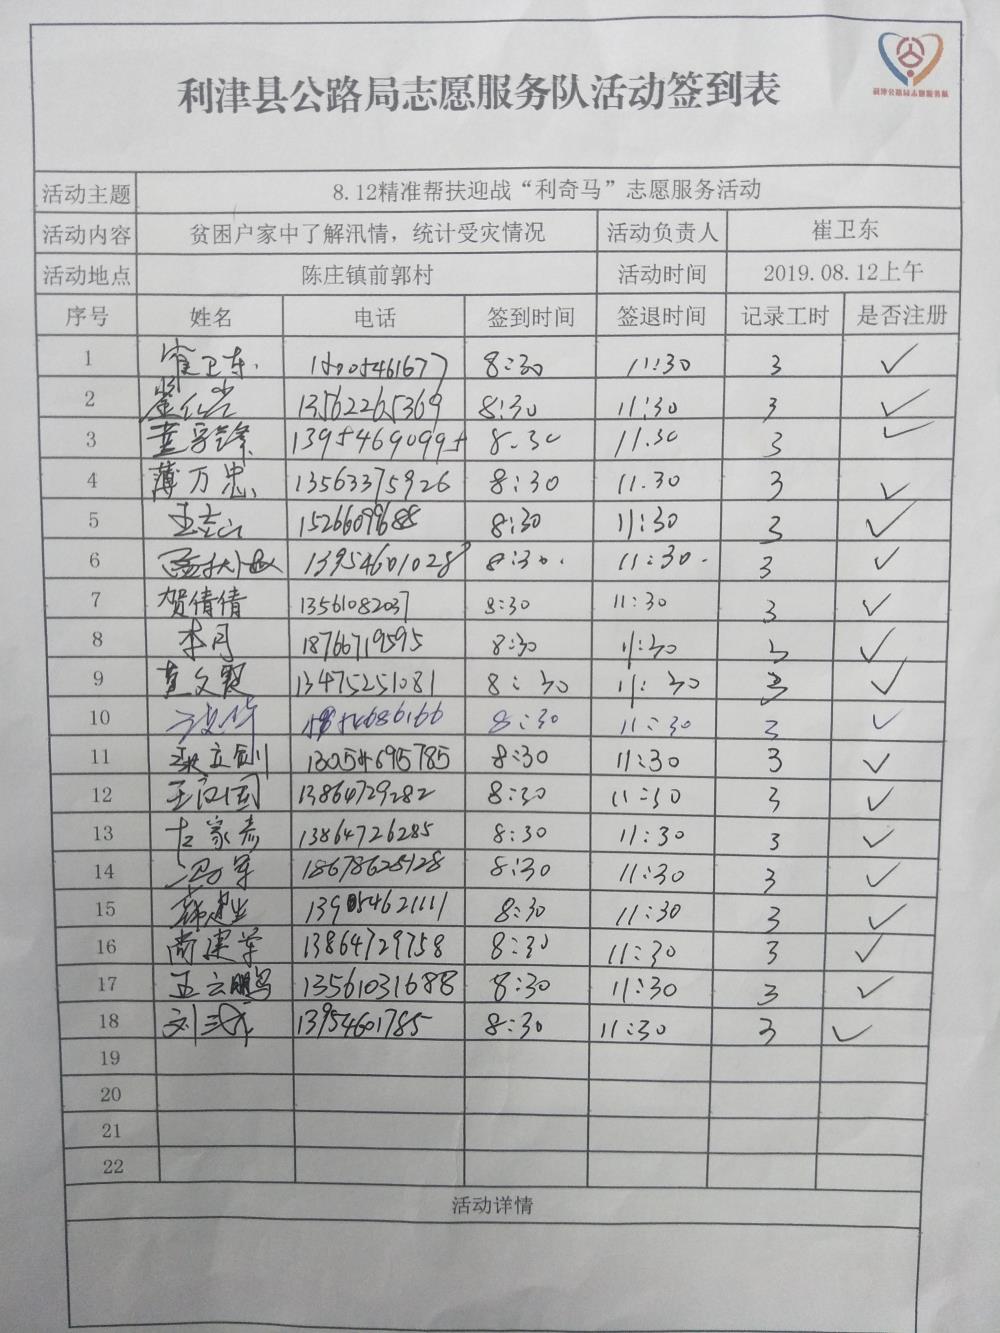 利津公路局志愿服务队
利津县公路局志愿服务队活动签到表
活动主题 8.12精准帮扶迎战“利奇马”志愿服务活动
活动内容 贫困户家中了解汛情，统计受灾情况 活动负责人 崔卫东
活动地点 陈庄镇前郭村 活动时间 2019.08.12上午
序号 姓名 电话 签到时间 签退时间 记录工时 是否注册
1 崔卫东 18005461677 8:30 11:30 3 ✓
2 13562265369 8:30 11:30 3 ✓
3 13954690995 8.30 11.30 3 ✓
4 薄万忠 13563375926 8:30 11.30 3 ✓
5 15266099688 8:30 11:30 3 ✓
6 13954601028 8:30. 11:30. 3 ✓
7 贺倩倩 13561082037 8:30 11:30 3 ✓
8 李月 18766719595 8:30 11:30 3 ✓
9 董文霞 13475251081 8:30 11:30 3 ✓
10 8:30 11:30 3 ✓
11 梁立钊 13054695785 8:30 11:30 3 ✓
12 王汉国 13864729282 8:30 11:30 3 ✓
13 古家彦 13864726285 8:30 11:30 3 ✓
14 冯军 18678625128 8:30 11:30 3 ✓
15 139054621111 8:30 11:30 3 ✓
16 尚建军 13864729758 8:30 11:30 3 ✓
17 王云鹏 13561031688 8:30 11:30 3 ✓
18 刘武 13954601785 8:30 11:30 3 ✓
19
20
21
22
活动详情